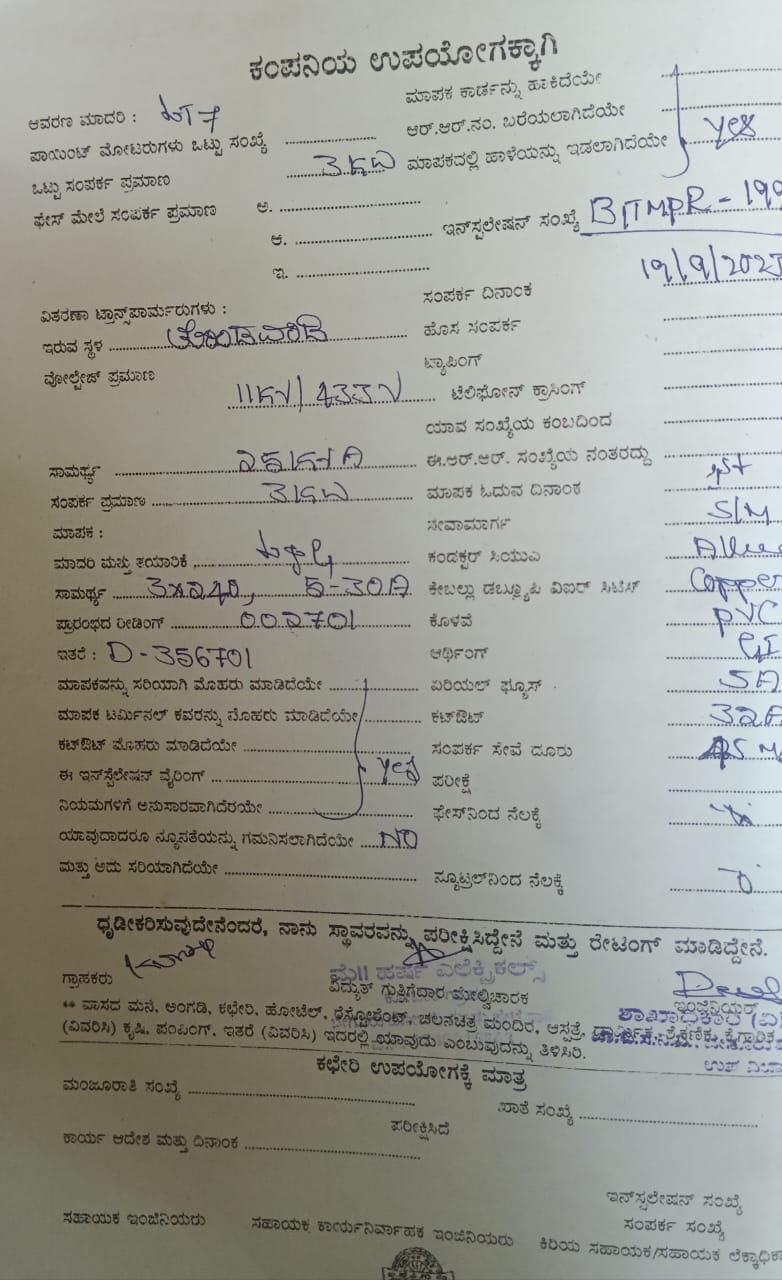 ಕಂಪನಿಯ ಉಪಯೋಗಕ್ಕಾಗಿ
ಆವರಣ ಮಾದರಿ : LT 7 ಮಾಪಕ ಕಾರ್ಡನ್ನು ಹಾಕಿದೆಯೇ
ಪಾಯಿಂಟ್ ಮೋಟರುಗಳು ಒಟ್ಟು ಸಂಖ್ಯೆ ಆರ್.ಆರ್.ನಂ. ಬರೆಯಲಾಗಿದೆಯೇ Yes
ಒಟ್ಟು ಸಂಪರ್ಕ ಪ್ರಮಾಣ 3KW ಮಾಪಕದಲ್ಲಿ ಹಾಳೆಯನ್ನು ಇಡಲಾಗಿದೆಯೇ
ಫೇಸ್ ಮೇಲೆ ಸಂಪರ್ಕ ಪ್ರಮಾಣ ಅ.
ಆ. ಇನ್‌ಸ್ಟಲೇಷನ್ ಸಂಖ್ಯೆ
ಇ.
ಸಂಪರ್ಕ ದಿನಾಂಕ
ವಿತರಣಾ ಟ್ರಾನ್ಸ್‌ಪಾರ್ಮರುಗಳು :
ಇರುವ ಸ್ಥಳ ಹೊಸ ಸಂಪರ್ಕ
ವೋಲ್ಟೇಜ್ ಪ್ರಮಾಣ ಟ್ಯಾಪಿಂಗ್
11KV/433V ಟೆಲಿಫೋನ್ ಕ್ರಾಸಿಂಗ್
ಯಾವ ಸಂಖ್ಯೆಯ ಕಂಬದಿಂದ
ಸಾಮರ್ಥ್ಯ 25KVA ಈ.ಆರ್.ಆರ್. ಸಂಖ್ಯೆಯ ನಂತರದ್ದು
ಸಂಪರ್ಕ ಪ್ರಮಾಣ 3KW ಮಾಪಕ ಓದುವ ದಿನಾಂಕ 1st
ಮಾಪಕ : ಸೇವಾಮಾರ್ಗ S/M
ಮಾದರಿ ಮತ್ತು ತಯಾರಿಕೆ L&G ಕಂಡಕ್ಟರ್ ಸಿಯುಎ
ಸಾಮರ್ಥ್ಯ 3x240, 5-30A ಕೇಬಲ್ಲು ಡಬ್ಲ್ಯೂಪಿ ವಿಐರ್ ಸಿಟಿಸ್ Copper
ಪ್ರಾರಂಭದ ರೀಡಿಂಗ್ 002701 ಕೊಳವೆ PVC
ಇತರೆ : D-356701 ಆರ್ಥಿಂಗ್ GI
ಮಾಪಕವನ್ನು ಸರಿಯಾಗಿ ಮೊಹರು ಮಾಡಿದೆಯೇ ಏರಿಯಲ್ ಫ್ಯೂಸ್ 5A
ಮಾಪಕ ಟರ್ಮಿನಲ್ ಕವರನ್ನು ಮೊಹರು ಮಾಡಿದೆಯೇ ಕಟ್‌ಔಟ್ 32A
ಕಟ್‌ಔಟ್ ಮೊಹರು ಮಾಡಿದೆಯೇ ಸಂಪರ್ಕ ಸೇವೆ ದೂರು
ಈ ಇನ್‌ಸ್ಟೆಲೇಷನ್ ವೈರಿಂಗ್ Yes ಪರೀಕ್ಷೆ
ನಿಯಮಗಳಿಗೆ ಅನುಸಾರವಾಗಿದೆರಯೇ ಫೇಸ್‌ನಿಂದ ನೆಲಕ್ಕೆ
ಯಾವುದಾದರೂ ನ್ಯೂನತೆಯನ್ನು ಗಮನಿಸಲಾಗಿದೆಯೇ NO
ಮತ್ತು ಅದು ಸರಿಯಾಗಿದೆಯೇ ನ್ಯೂಟ್ರಲ್‌ನಿಂದ ನೆಲಕ್ಕೆ
ಧೃಡೀಕರಿಸುವುದೇನೆಂದರೆ, ನಾನು ಸ್ಥಾವರವನ್ನು ಪರೀಕ್ಷಿಸಿದ್ದೇನೆ ಮತ್ತು ರೇಟಿಂಗ್ ಮಾಡಿದ್ದೇನೆ.
ಮೆ|| ಹರ್ಷ ಎಲೆಕ್ಟ್ರಿಕಲ್ಸ್
ಗ್ರಾಹಕರು ವಿದ್ಯುತ್ ಗುತ್ತಿಗೆದಾರ ಮೇಲ್ವಿಚಾರಕ ಇಂಜಿನಿಯರ್
** ವಾಸದ ಮನೆ, ಅಂಗಡಿ, ಕಛೇರಿ, ಹೋಟೆಲ್, ರೆಸ್ಟೋರೆಂಟ್, ಚಲನಚಿತ್ರ ಮಂದಿರ, ಆಸ್ಪತ್ರೆ, ಧಾರ್ಮಿಕ, ಶೈಕ್ಷಣಿಕ, ಕೈಗಾರಿಕ
(ವಿವರಿಸಿ) ಕೃಷಿ, ಪಂಪಿಂಗ್, ಇತರೆ (ವಿವರಿಸಿ) ಇದರಲ್ಲಿ ಯಾವುದು ಎಂಬುವುದನ್ನು ತಿಳಿಸಿರಿ.
ಕಛೇರಿ ಉಪಯೋಗಕ್ಕೆ ಮಾತ್ರ
ಮಂಜೂರಾತಿ ಸಂಖ್ಯೆ ಖಾತೆ ಸಂಖ್ಯೆ
ಪರೀಕ್ಷಿಸಿದೆ
ಕಾರ್ಯ ಆದೇಶ ಮತ್ತು ದಿನಾಂಕ
ಇನ್‌ಸ್ಟಲೇಷನ್ ಸಂಖ್ಯೆ
ಸಂಪರ್ಕ ಸಂಖ್ಯೆ
ಸಹಾಯಕ ಇಂಜಿನಿಯರು ಸಹಾಯಕ ಕಾರ್ಯನಿರ್ವಾಹಕ ಇಂಜಿನಿಯರು ಕಿರಿಯ ಸಹಾಯಕ/ಸಹಾಯಕ